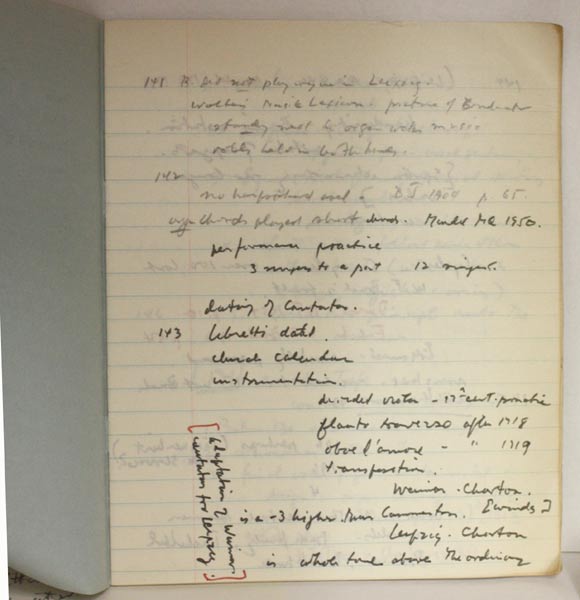 141 B. did not play organ in Leipzig.
Walther Musik Lexicon. picture of Conductor
standing next to organ with music
rolls held in both hands.
142
no harpsichord used - BJ 1904 p. 65.
organ chords played short chords. Mendel MQ 1950.
performance practice
3 singers to a part 12 singers.
dating of Cantatas.
143 libretti dated.
church calendar
instrumentation.
divided violas - 17th cent. practice
flauto traverso after 1718
oboe d'amore - " 1719
transposition.
Weimar - Chorton.
is a -3 higher than Cammerton. [winds]
Leipzig - Chorton
is whole tone above the ordinary
[adaptation of Weimar
cantatas for Leipzig.]